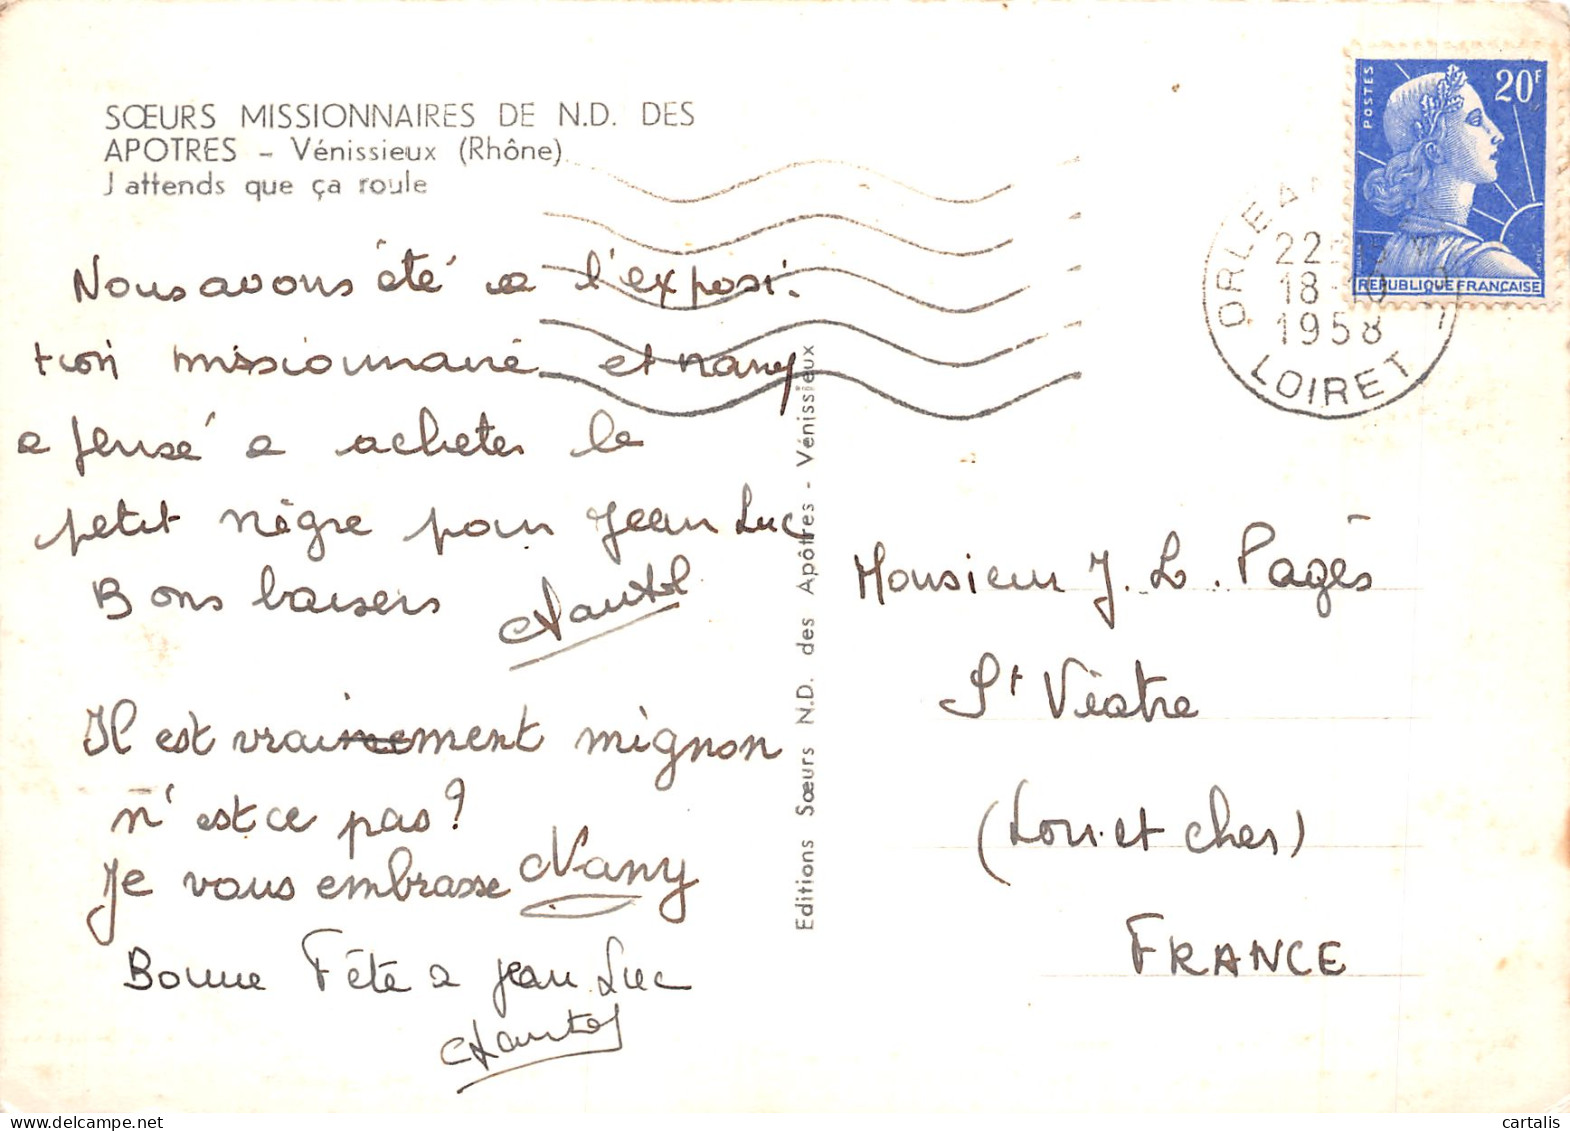 SŒURS MISSIONNAIRES DE N.D. DES
APOTRES – Vénissieux (Rhône)
J attends que ça roule
Nous avons été a l'exposi-
tion missionnaire et nany
a pensé a acheter le
petit nègre pour Jean Luc
Bons baisers Chantal
Il est vraiment mignon
n'est ce pas?
Je vous embrasse Nany
Bonne Fête a Jean Luc
Chantal
Editions Sœurs N.D. des Apôtres - Vénissieux
POSTES
20F
REPUBLIQUE FRANÇAISE
ORLEA
22
18-10
1958
LOIRET
Monsieur J. L. Pagès
St Viatre
(Loir et cher)
FRANCE
cartalis
www.delcampe.net